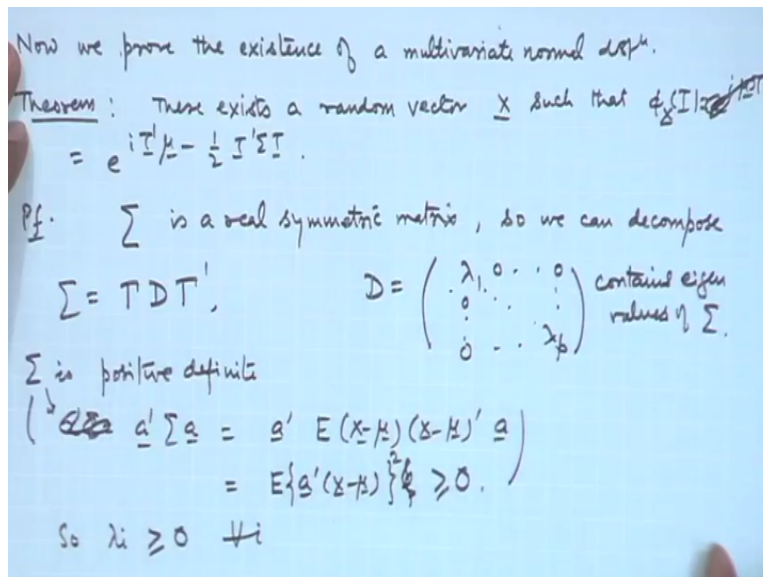 Now we prove the existence of a multivariate normal dstⁿ.
Theorem : There exists a random vector X such that φ_X(T)
= e^{i T'μ - ½ T'ΣT}.
Pf. Σ is a real symmetric matrix, so we can decompose
Σ = T D T', D = ( λ₁ 0 . . 0 contains eigen
0 . . . : values of Σ.
0 . . λp )
Σ is positive definite
( a'Σa = a' E (X-μ)(X-μ)' a
= E{a'(X-μ)}² ≥ 0. )
So λi ≥ 0 ∀i